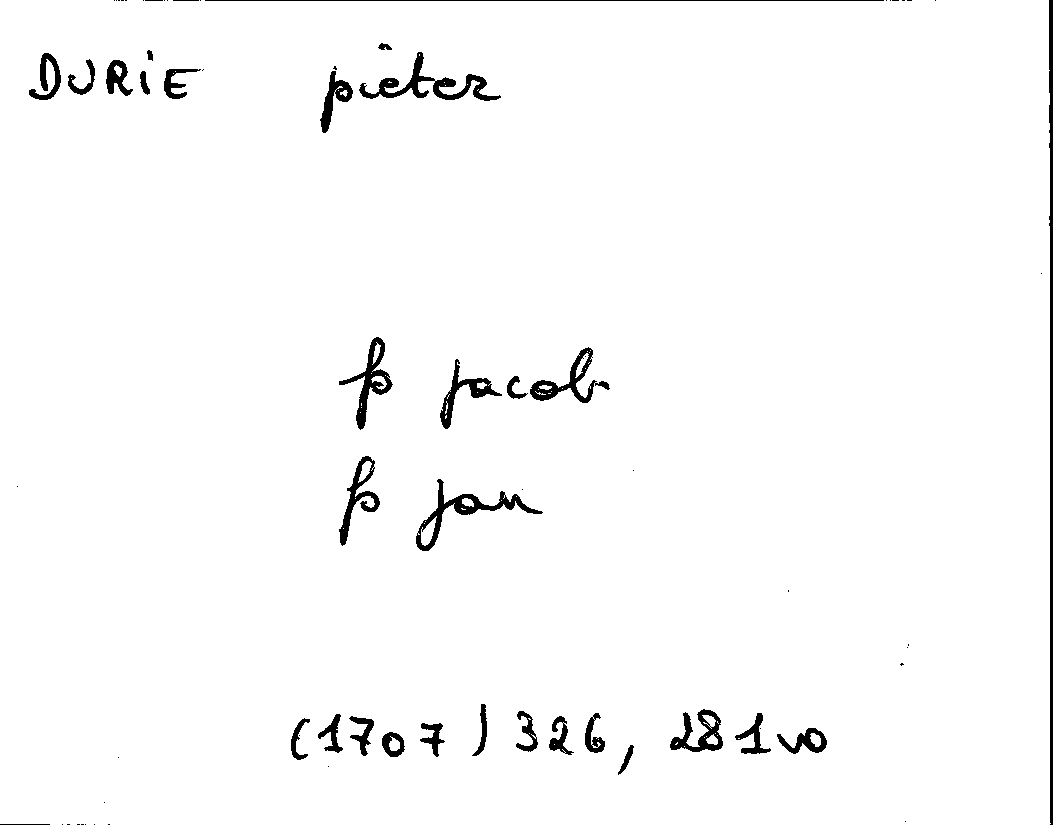 DURIE pieter
fs jacob
fs jan
(1707) 326, 281vo